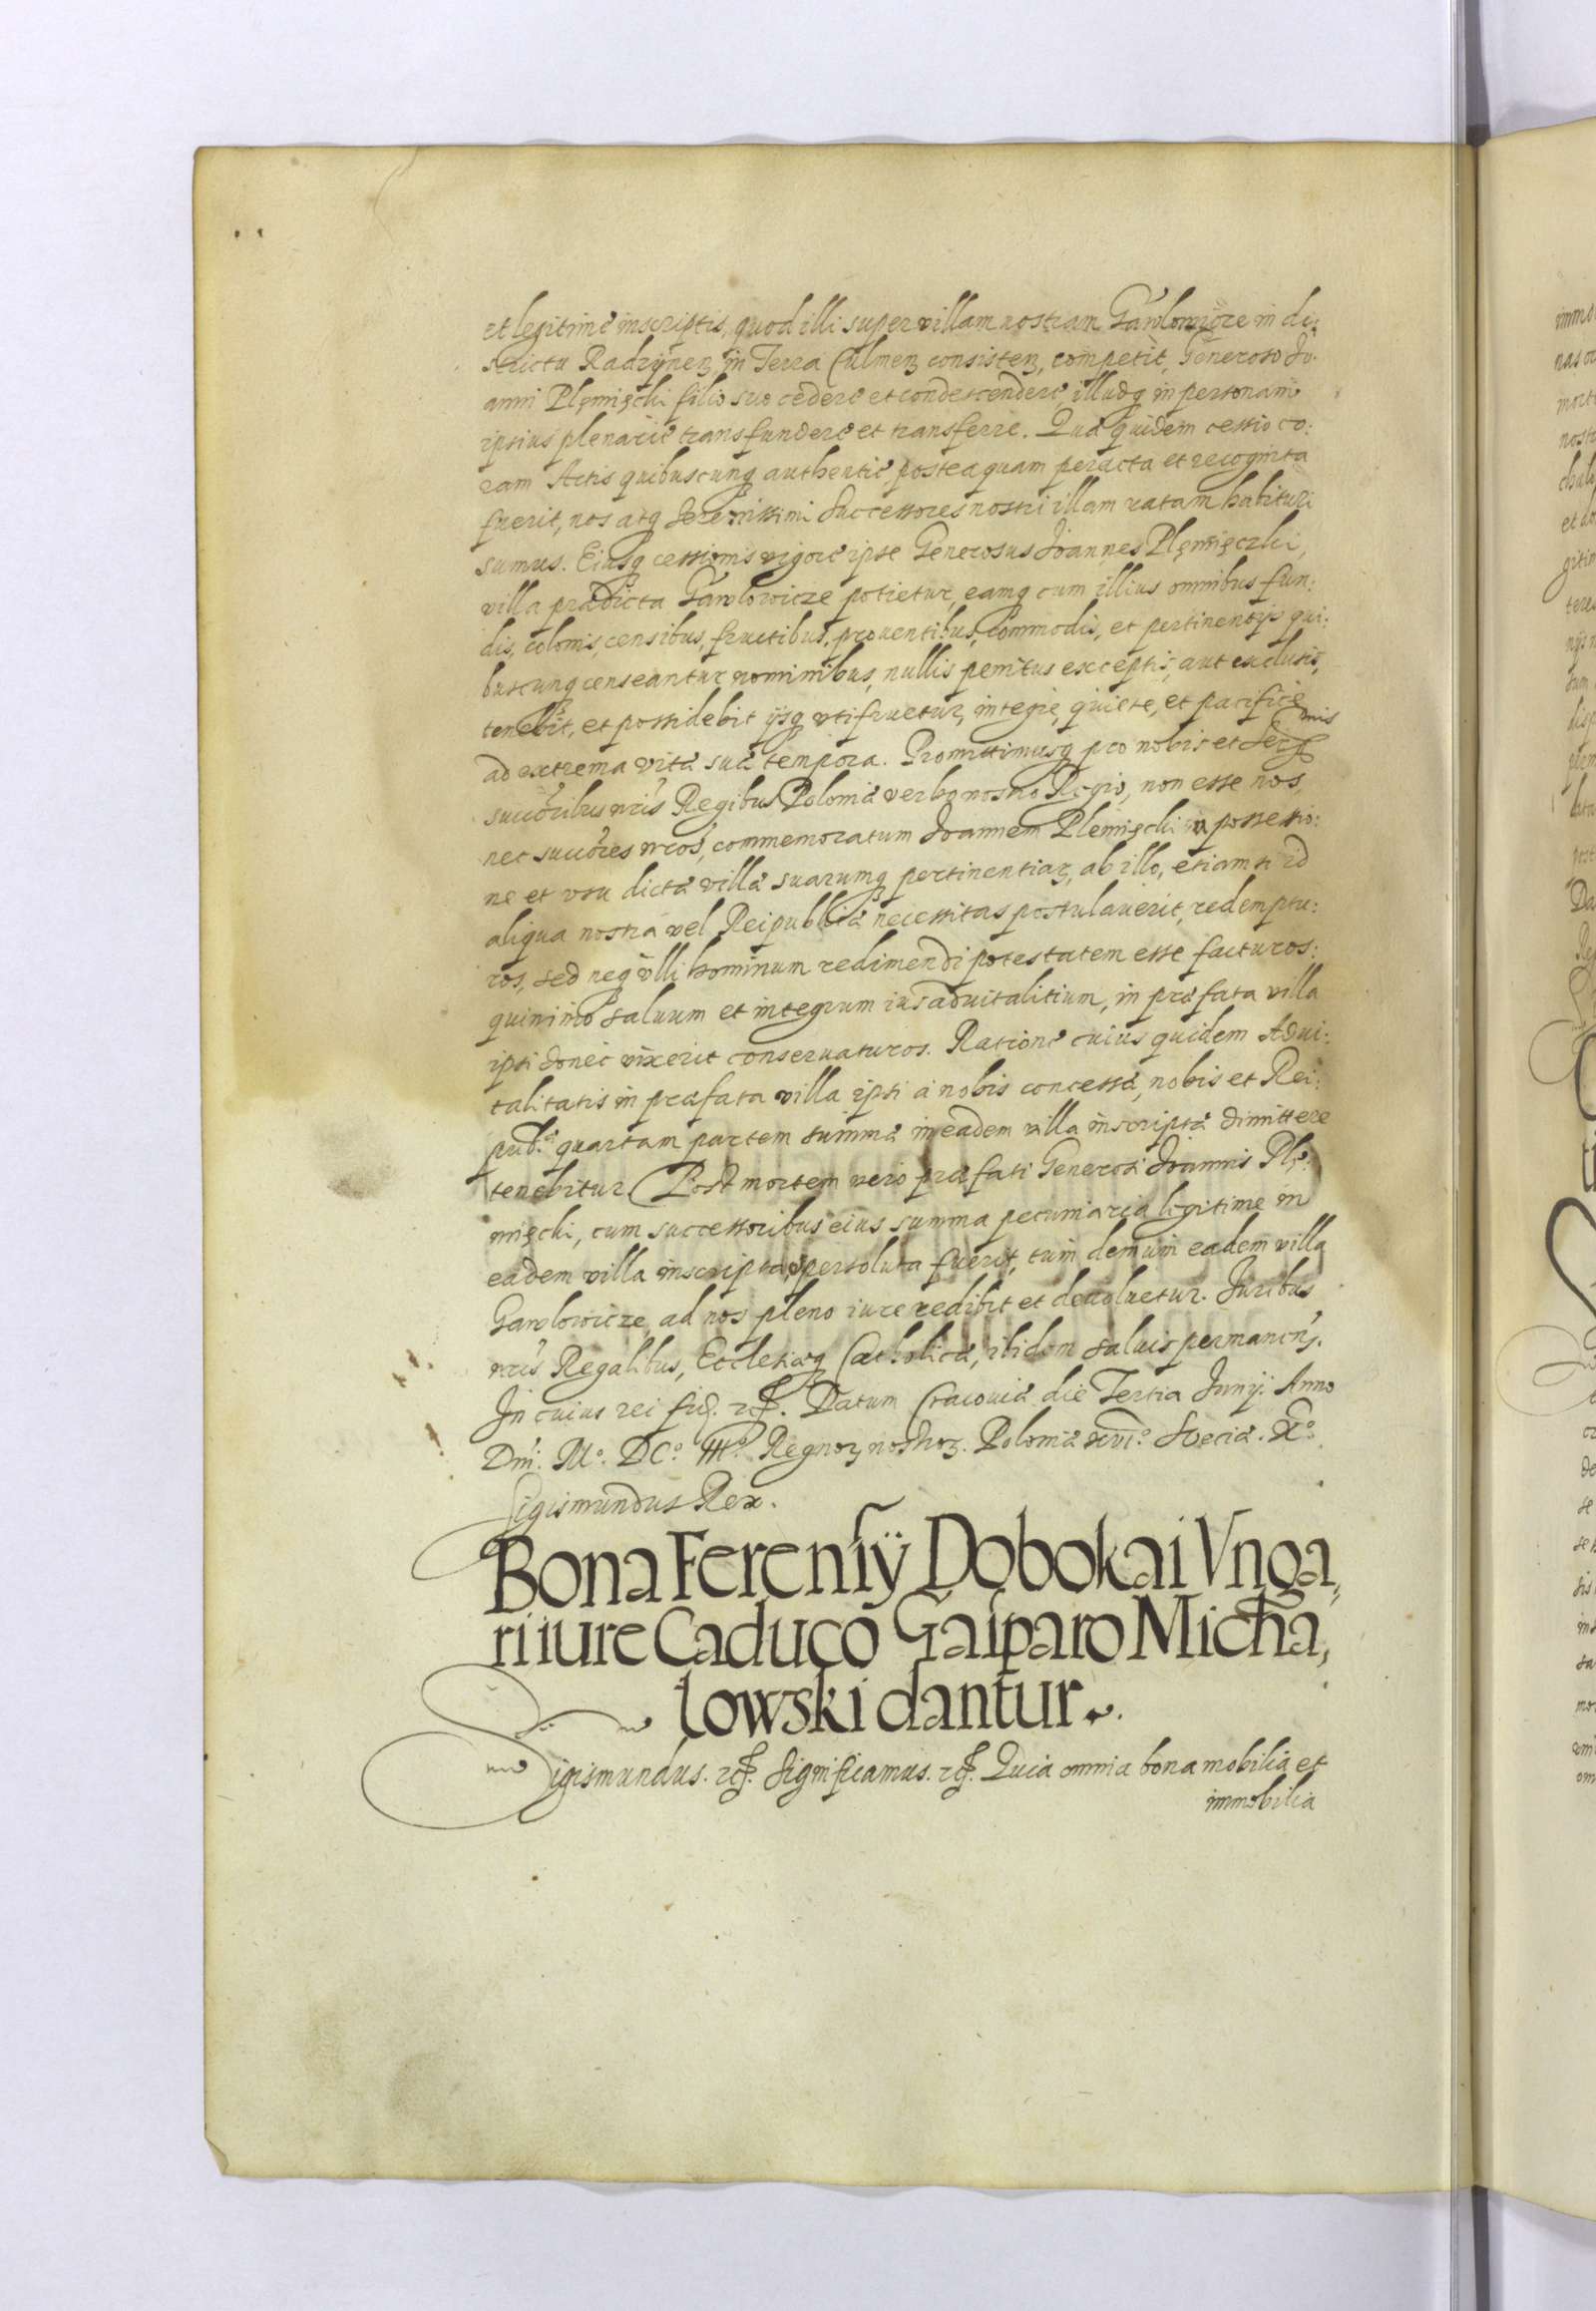 et legitime inscriptis, quod illi super villam nostram Gawlowicze in di:
strictu Radzÿnen in Terra Culmen consisten, competit, Generoso Jo.
anni Plęmięcki filio suo cedere et condescendere illudq in personam
ipsius plenarie transfundere et transferre. Quæ quidem cessio co:
ram Actis quibuscunq authentic posteaquam peracta et recognita
fuerit, nos atq Serenissimi Successores nostri illam ratam habituri
sumus. Eiusq cessionis vigore ipse Generosus Joannes Plęmięczki,
villa prædicta Gawlowicze potietur, eamq cum illius omnibus fun:
dis, colonis, censibus, fructibus, prouentibus, commodis, et pertinentijs qui:
buscunq censeantur nominibus, nullis penitus exceptis, aut exclusis,
tenebit, et possidebit ijsq vtifruetur, integre, quiete, et pacifice
ad extrema vitæ suæ tempora. Promittimusq pro nobis et Ser mis
succoribus nris Regibus Poloniæ verbo nostro Regio, non esse nos,
nec succores nros, commemoratum Joannem Plemięcki in possessio:
ne et vsu dictæ villæ suarumq pertinentiar, ab illo, etiamsi id
aliqua nostra vel Reipublicæ necessitas postulauerit, redemptu:
ros, sed neq vlli hominum redimendi potestatem esse facturos:
quinimo saluum et integrum ius aduitalitium, in præfata villa
ipsi donec vixerit conseruaturos. Ratione cuius quidem Adui:
talitatis in præfata villa ipsi a nobis concessæ, nobis et Rei:
pub.æ quartam partem summæ in eadem villa inscriptæ dimittere
tenebitur. Post mortem vero præfati Generosi Joannis Plę:
mięcki, cum successoribus eius summa pecuniaria legitime in
eadem villa inscripta, persoluta fuerit, tum demum eadem villa
Gawlowicze ad nos pleno iure redibit et deuoluetur. Juribus
nris Regalibus, Ecclesiæq Catholicæ, ibidem saluis permanen.
In cuius rei fid. etc. Datum Cracouiæ die Tertia Junij. Anno
Dni. M.o DC.o III.o Regnor nostror. Poloniæ xvi.o Sueciæ. X.o
Sigismundus Rex.
Bona Ferensÿ Dobokai Vnga,
ri iure Caduco Gasparo Micha,
lowski dantur.
Sigismundus. etc. Significamus. etc. Quia omnia bona mobilia et
immobilia